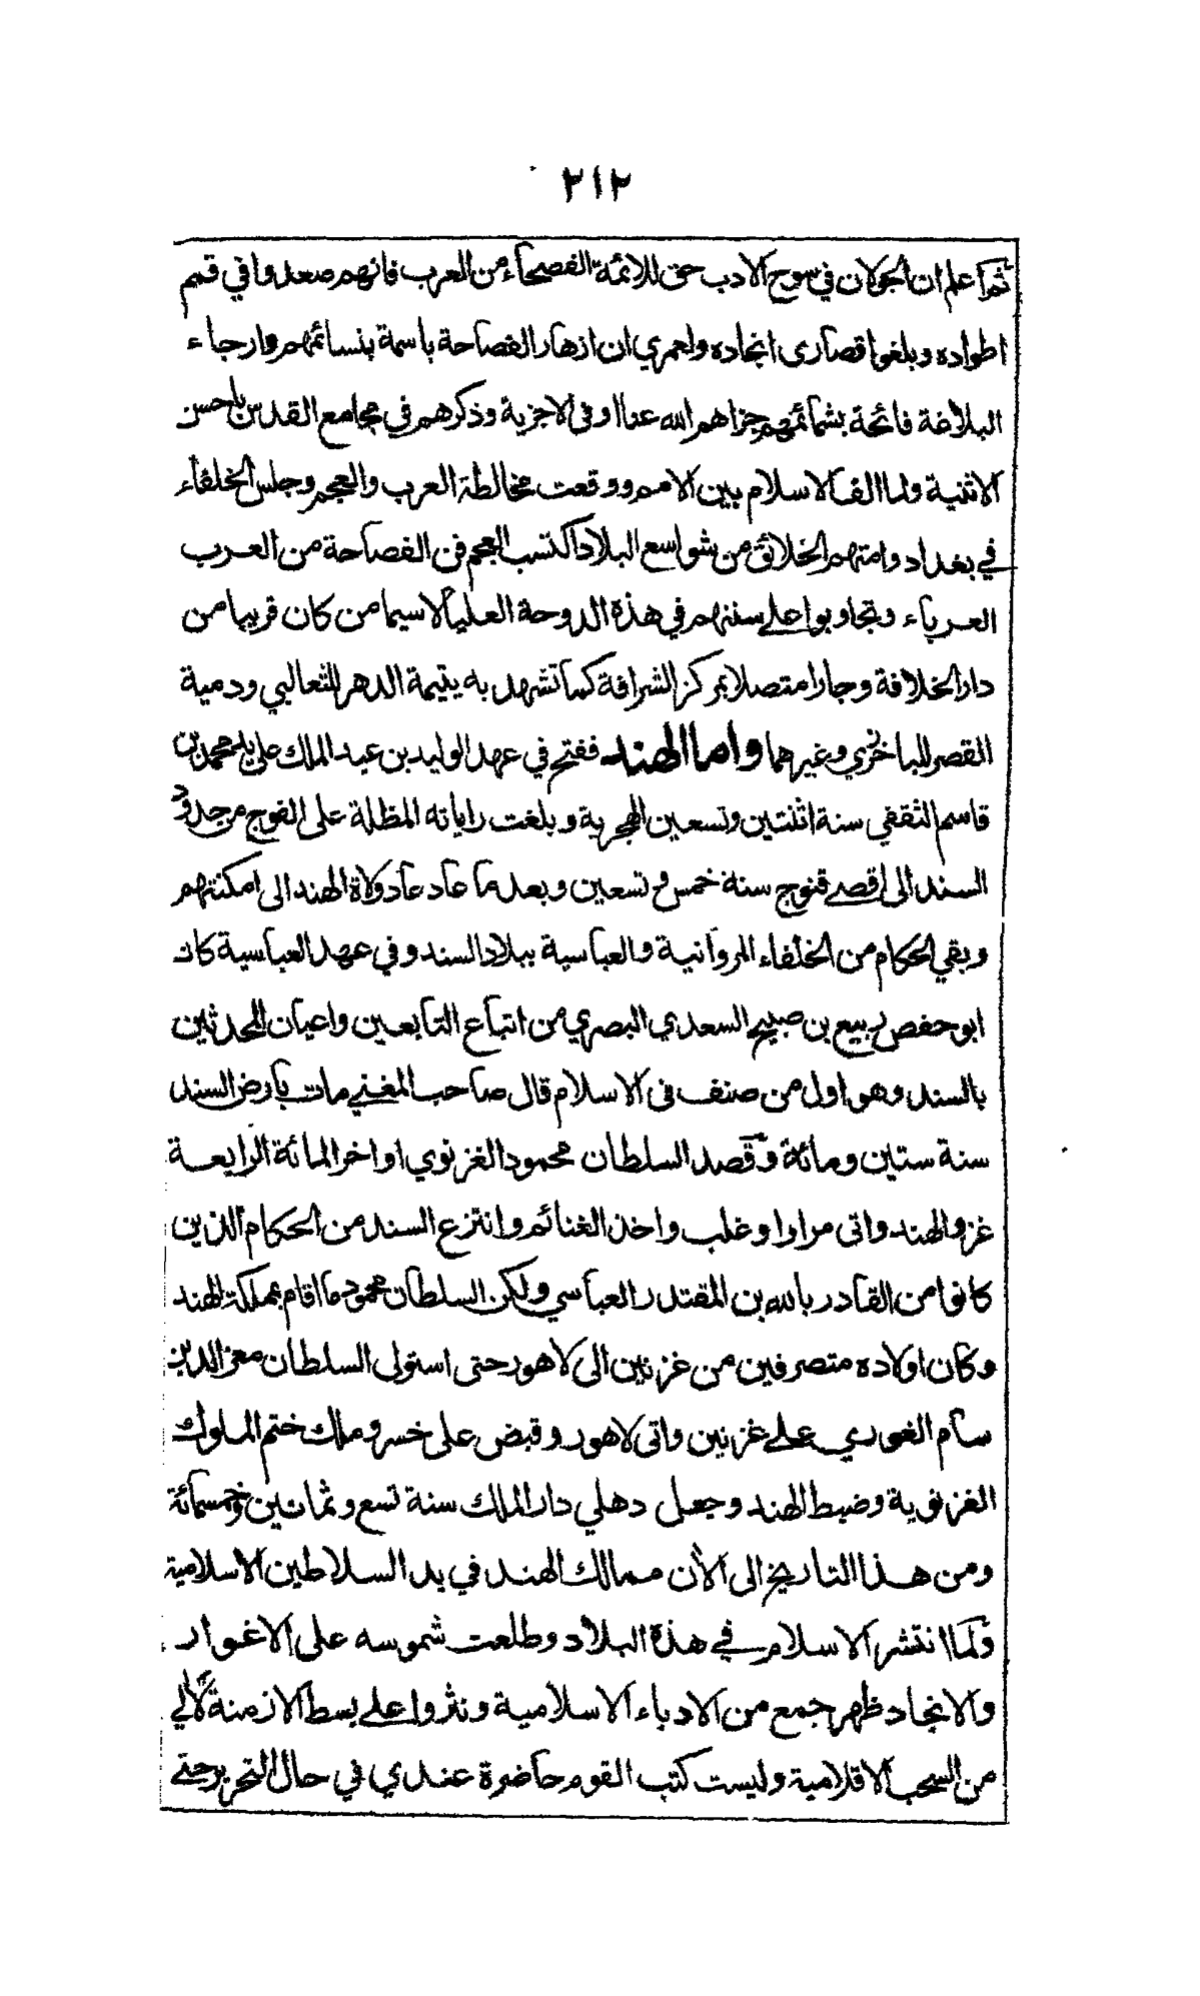 ٢١٢
ثم اعلم ان الجولان في سوح الادب حق للائمة الفصحاء من العرب فانهم صعدوا في قمم
اطواده وبلغوا قصارى انجاده ولعمري ان ازهار الفصاحة باسمة بنسائمهم وارجاء
البلاغة فائحة بشمائمهم جزاهم الله عنا اوفى الاجزية وذكرهم في مجامع القدس باحسن
الاثنية ولما الف الاسلام بين الامم ووقعت مخالطة العرب والعجم وجلس الخلفاء
في بغداد وامتهم الخلائق من شواسع البلاد اكتسب العجم فن الفصاحة من العرب
العرباء وتجاوبوا على سننهم في هذه الدوحة العلياء لاسيما من كان قريبا من
دار الخلافة وجارا متصلا بمركز الشرافة كما تشهد به يتيمة الدهر للثعالبي ودمية
القصر للباخرزي وغيرهما واما الهند ففتح في عهد الوليد بن عبد الملك على يد محمد بن
قاسم الثقفي سنة اثنتين وتسعين الهجرية وبلغت راياته المظلة على الفوج من حدود
السند الى اقصى قنوج سنة خمس وتسعين وبعد ما عاد عاد ولاة الهند الى امكنتهم
وبقي الحكام من الخلفاء المروانية والعباسية ببلاد السند وفي عهد العباسية كان
ابو حفص ربيع بن صبيح السعدي البصري من اتباع التابعين واعيان المحدثين
بالسند وهو اول من صنف في الاسلام قال صاحب المغني مات بارض السند
سنة ستين ومائة وقصد السلطان محمود الغزنوي اواخر المائة الرابعة
غزو الهند واتى مرارا وغلب واخذ الغنائم وانتزع السند من الحكام الذين
كانوا من القادر بالله بن المقتدر العباسي ولكن السلطان محمود ما اقام بمملكة الهند
وكان اولاده متصرفين من غزنين الى لاهور حتى استولى السلطان معز الدين
سام الغوري على غزنين واتى لاهور وقبض على خسرو ملك ختم الملوك
الغزنوية وضبط الهند وجعل دهلي دار الملك سنة تسع وثمانين وخمسمائة
ومن هذا التاريخ الى الآن ممالك الهند في يد السلاطين الاسلامية
ولما انتشر الاسلام في هذة البلاد وطلعت شموسه على الاغوار
والانجاد ظهر جمع من الادباء الاسلامية ونثروا على بسط الازمنة لآلي
من السحب الاقلامية وليست كتب القوم حاضرة عندي في حال التحرير حتى